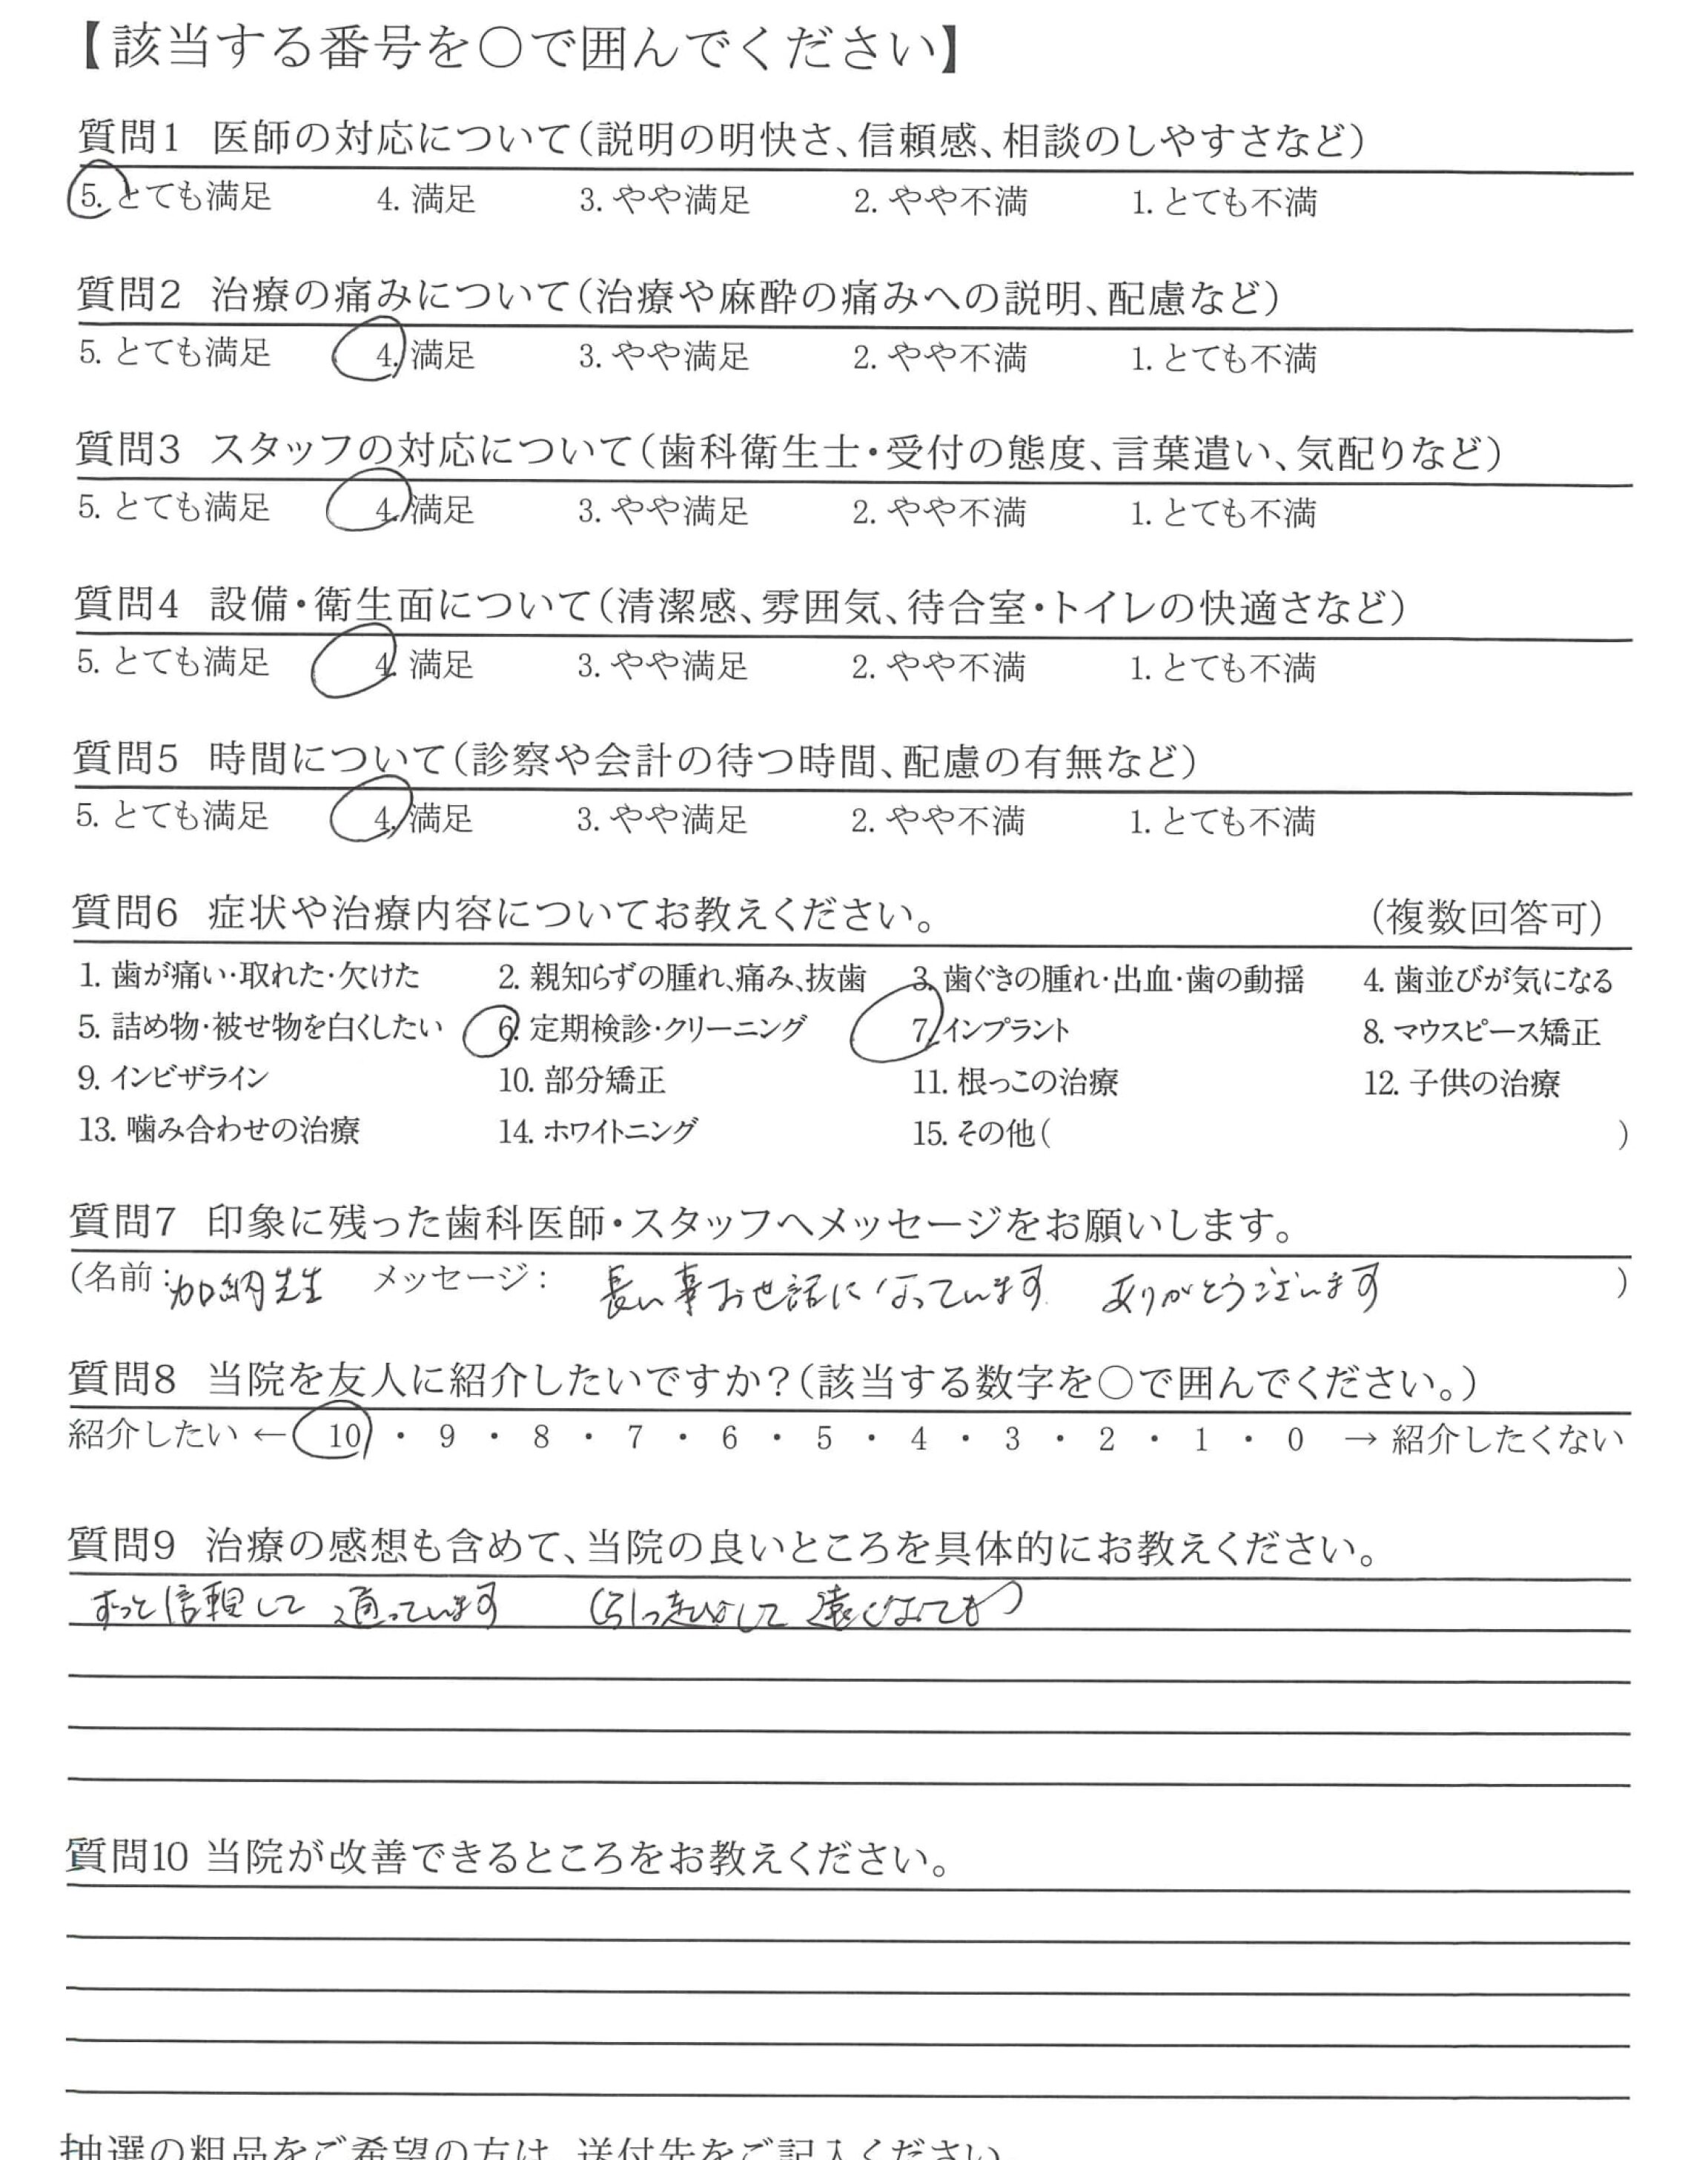 【該当する番号を○で囲んでください】
質問1 医師の対応について(説明の明快さ、信頼感、相談のしやすさなど)
5. とても満足 4. 満足 3. やや満足 2. やや不満 1. とても不満
質問2 治療の痛みについて(治療や麻酔の痛みへの説明、配慮など)
5. とても満足 4. 満足 3. やや満足 2. やや不満 1. とても不満
質問3 スタッフの対応について(歯科衛生士・受付の態度、言葉遣い、気配りなど)
5. とても満足 4. 満足 3. やや満足 2. やや不満 1. とても不満
質問4 設備・衛生面について(清潔感、雰囲気、待合室・トイレの快適さなど)
5. とても満足 4. 満足 3. やや満足 2. やや不満 1. とても不満
質問5 時間について(診察や会計の待つ時間、配慮の有無など)
5. とても満足 4. 満足 3. やや満足 2. やや不満 1. とても不満
質問6 症状や治療内容についてお教えください。 (複数回答可)
1. 歯が痛い・取れた・欠けた 2. 親知らずの腫れ、痛み、抜歯 3. 歯ぐきの腫れ・出血・歯の動揺 4. 歯並びが気になる
5. 詰め物・被せ物を白くしたい 6. 定期検診・クリーニング 7. インプラント 8. マウスピース矯正
9. インビザライン 10. 部分矯正 11. 根っこの治療 12. 子供の治療
13. 噛み合わせの治療 14. ホワイトニング 15. その他( )
質問7 印象に残った歯科医師・スタッフへメッセージをお願いします。
(名前:加納先生 メッセージ: 長い事お世話になっています ありがとうございます )
質問8 当院を友人に紹介したいですか?(該当する数字を○で囲んでください。)
紹介したい ← 10 ・ 9 ・ 8 ・ 7 ・ 6 ・ 5 ・ 4 ・ 3 ・ 2 ・ 1 ・ 0 → 紹介したくない
質問9 治療の感想も含めて、当院の良いところを具体的にお教えください。
ずっと信頼して 通っています (引っ越しして 遠くなっても)
質問10 当院が改善できるところをお教えください。
抽選の粗品をご希望の方は、送付先をご記入ください